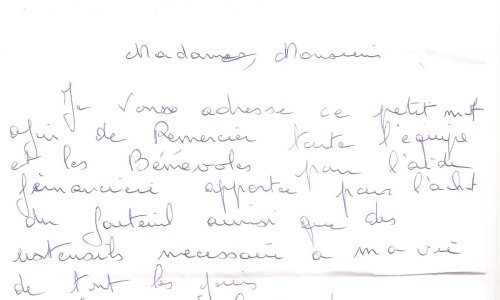 Madame, Monsieur
Je vous adresse ce petit mot
afin de Remercier toute l'équipe
et les Bénévoles pour l'aide
finanncière apportée pour l'achat
du fauteuil ainsi que des
ustensils necessaire a ma vie
de tout les jours